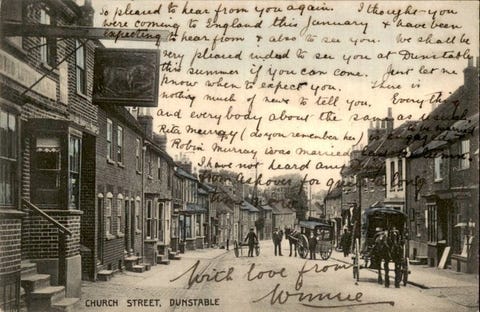 So pleased to hear from you again. I thought you
were coming to England this January & have been
expecting to hear from & also to see you. We shall be
very pleased indeed to see you at Dunstable
this summer if you can come. Just let me
know when to expect you. There is
nothing much of news to tell you. Everything
and everybody about the same as usual.
Rita Murray (do you remember her) is to be married
Robin Murray was married
I have not heard
from for quite a long
time
With love from
Winnie
CHURCH STREET, DUNSTABLE